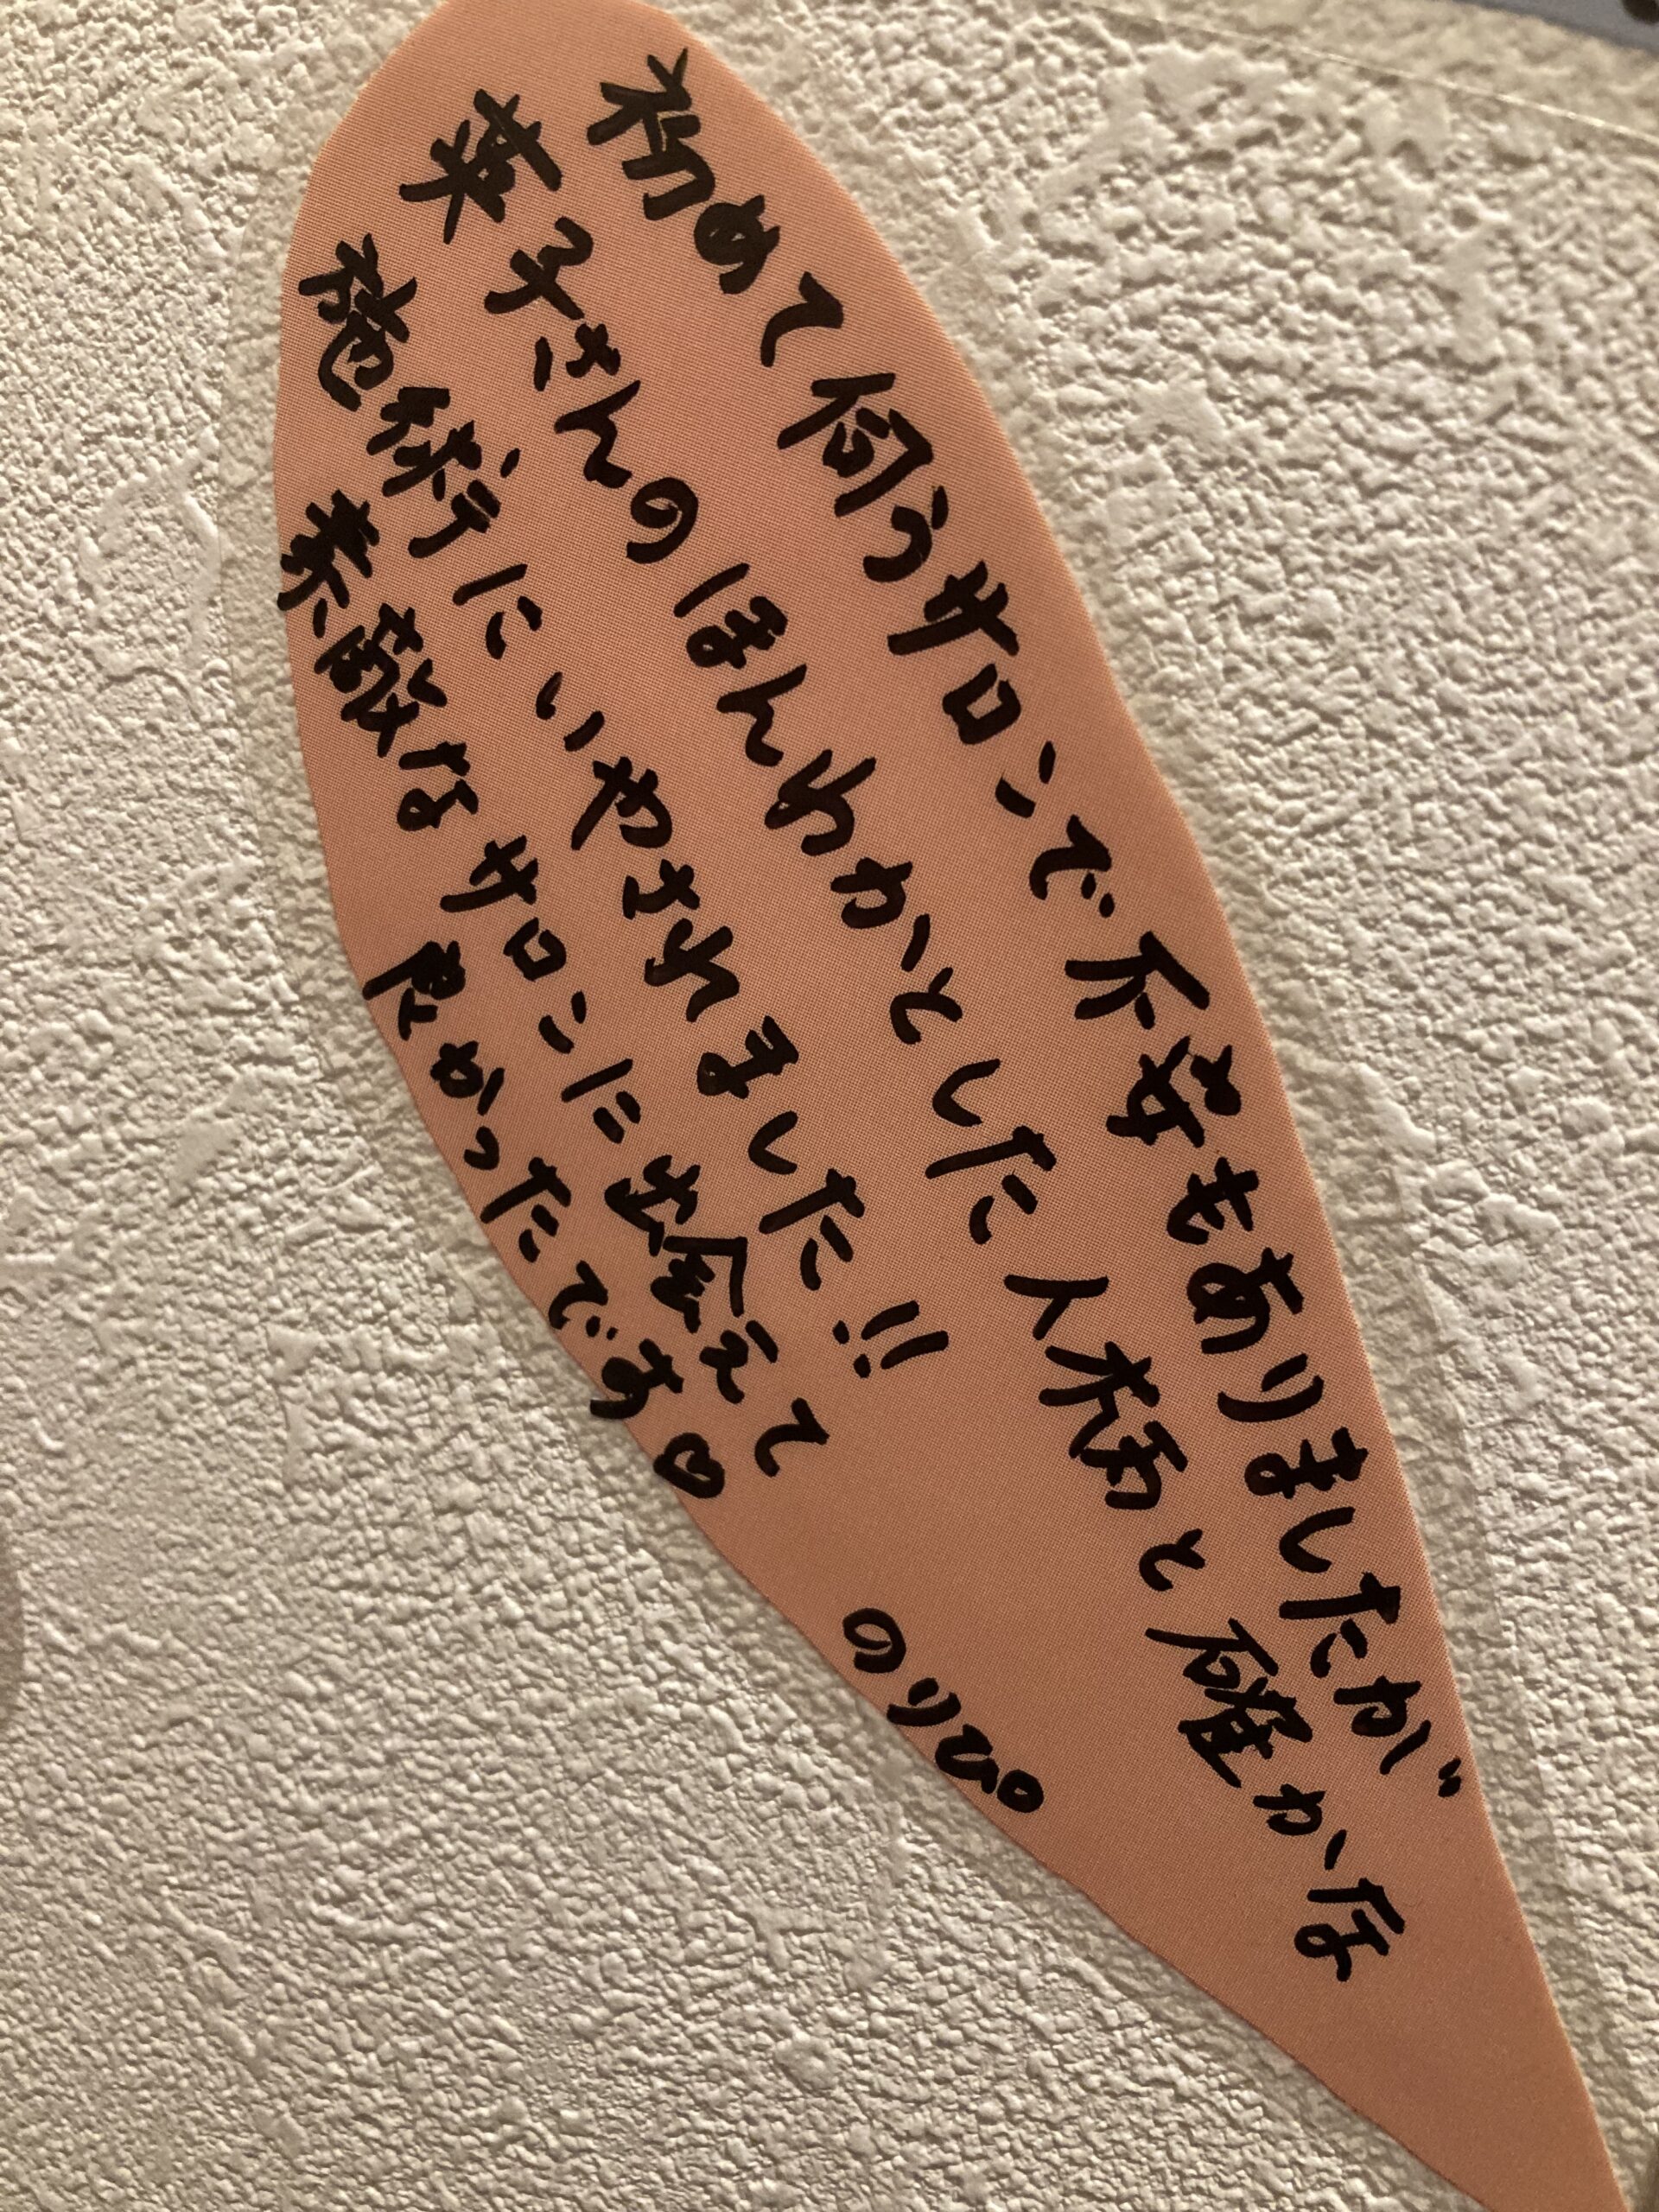 初めて伺うサロンで不安もありましたが
英子さんのほんわかとした人柄と確かな
施術にいやされました!!
素敵なサロンに出会えて
良かったです♡
のりぴ。